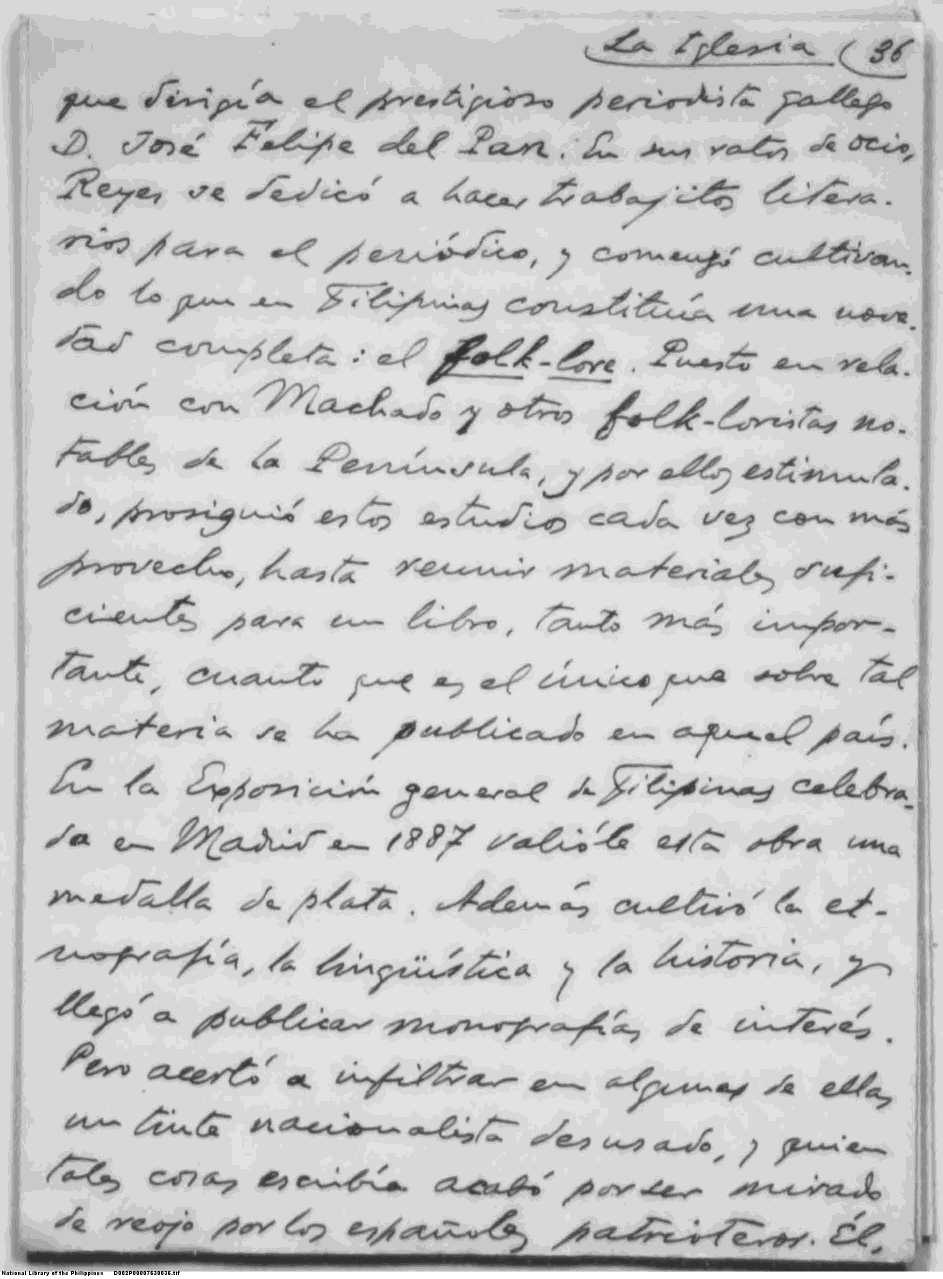 La Iglesia (36
que dirigía el prestigioso periodista gallego
D. José Felipe del Pan. En sus ratos de ocio,
Reyes se dedicó a hacer trabajitos litera-
rios para el periódico, y comenzó cultivan-
do lo que en Filipinas constituía una nove-
dad completa: el folk-lore. Puesto en rela-
ción con Machado y otros folk-loristas no-
tables de la Península, y por ellos estimula-
do, prosiguió estos estudios cada vez con más
provecho, hasta reunir materiales sufi-
cientes para un libro, tanto más impor-
tante, cuanto que es el único que sobre tal
materia se ha publicado en aquel país.
En la Exposición general de Filipinas celebra-
da en Madrid en 1887 valióle esta obra una
medalla de plata. Además cultivó la et-
nografía, la lingüística y la historia, y
llegó a publicar monografías de interés.
Pero acertó a infiltrar en algunas de ellas
un tinte nacionalista desusado, y quien
tales cosas escribía acabó por ser mirado
de reojo por los españoles patrioteros. Él,
National Library of the Philippines D002P00007630036.tif